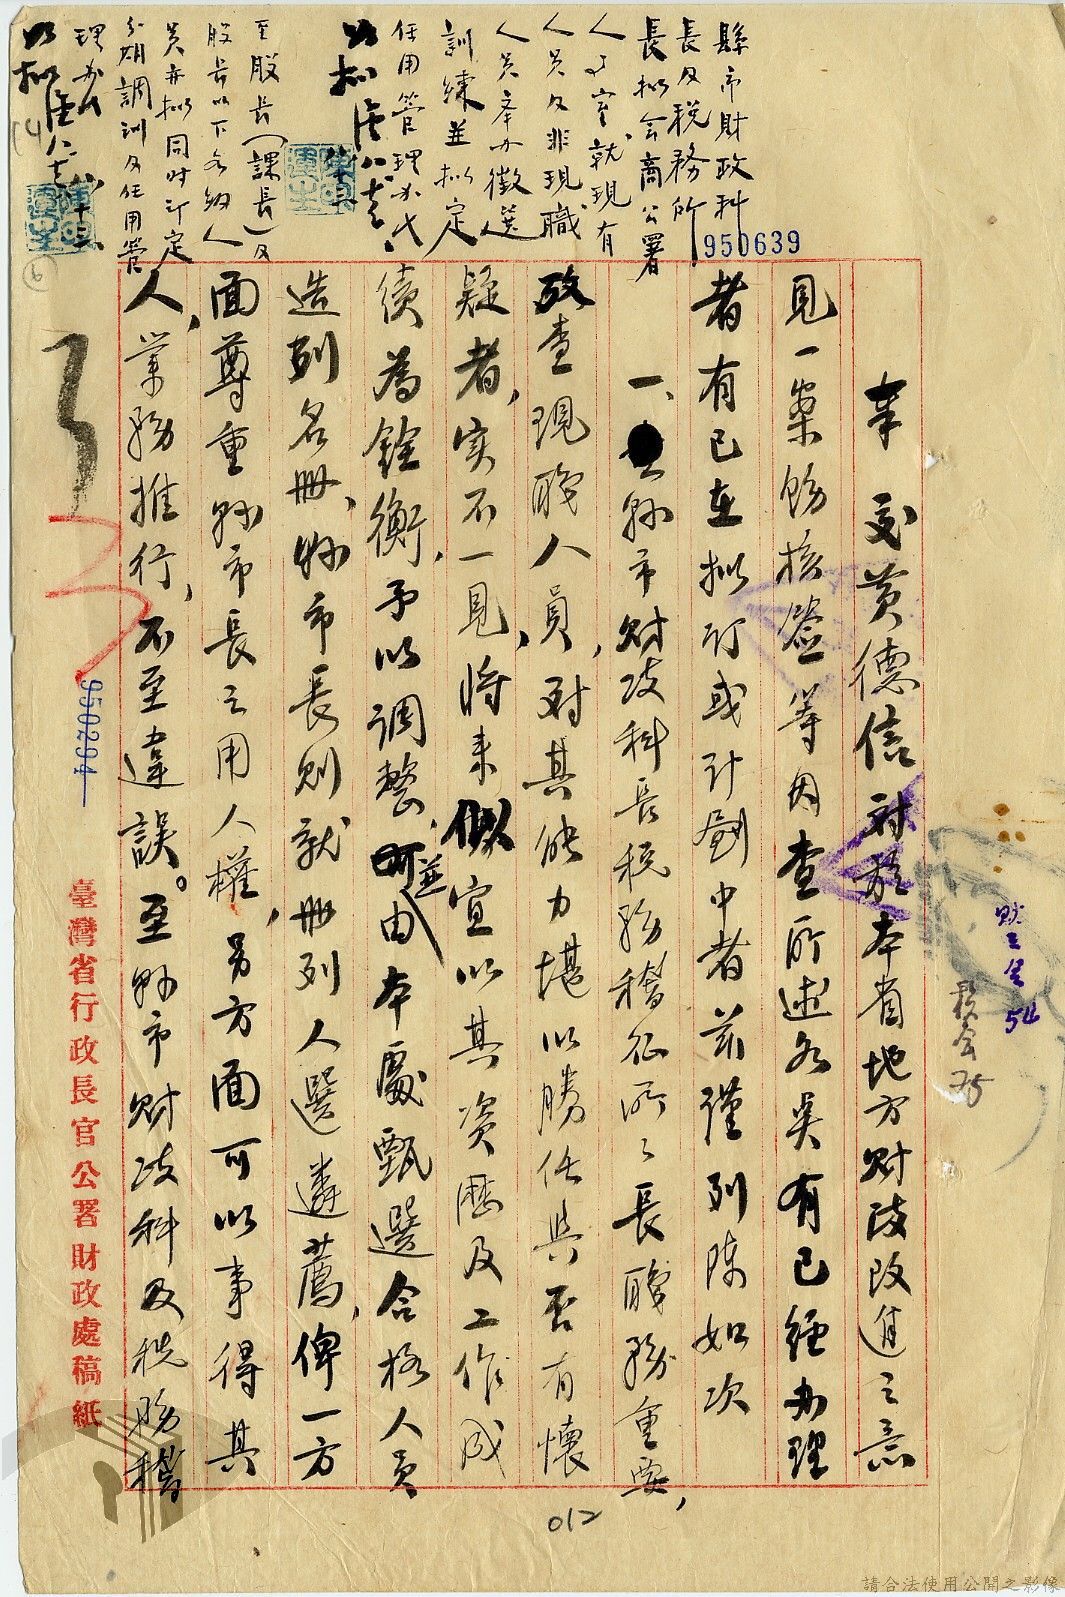 縣市財政科
長及稅務所
長擬會商公署
人事室就現有
人員及非現職
人員奉办徵選
訓練並擬定
任用管理办法
如擬
至股長(課長)及
股長以下各級人
員亦擬同时订定
分期調训及任用管
理办法
如擬
950639
奉 交黄德信对於本省地方财政改進之意
見一案飭核簽等因查所述各点有已经办理
者有已在拟订或计劃中者兹谨列陈如次
一、县市财政科長税務稽征所所長職務重要,
故查現職人員,对其能力堪以勝任與否有懷
疑者,实不一見,将来似宜以其資歷及工作成
绩為銓衡,予以调整,並由本處甄選合格人员
造列名册,县市長则就册列人選遴薦,俾一方
面尊重县市長之用人權,另方面可以事得其
人,業務推行,不至違誤。至县市财政科及税務稽
臺灣省行政長官公署財政處稿紙
950294
012
54
75
(6)
請合法使用公開之影像